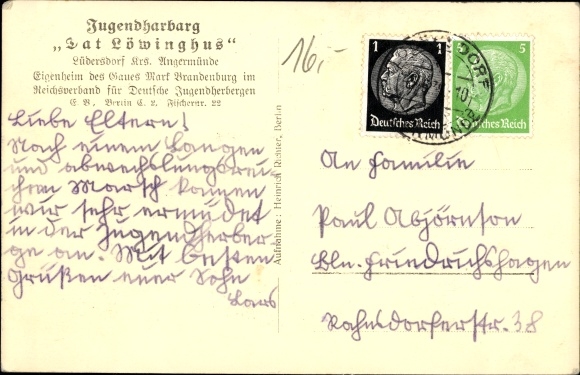 Jugendharbarg
„Dat Löwinghus“
Lüdersdorf Krs. Angermünde
Eigenheim des Gaues Mark Brandenburg im
Reichsverband für Deutsche Jugendherbergen
E. V., Berlin C. 2. Fischerstr. 22
16,-
Liebe Eltern!
Nach einem Langen
und abwechslungsrei-
chem Marsch kamen
wir sehr ermüdet
in der Jugendherber-
ge an. Mit besten
Grüßen euer Sohn
Lars
Aufnahme: Heinrich Richter, Berlin
1 1
Deutsches Reich
5 5
Deutsches Reich
An Familie
Paul Abjörnson
Bln. Friedrichshagen
Rahnsdorferstr. 38